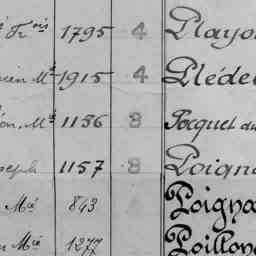 Fr ois 1795 4 Playo
ien Mie 1915 4 Plédel
on Mie 1156 8 Pocquet du
seph 1157 8 Poigna
Mie 843 Poigna
n Mie 1277 Poillon